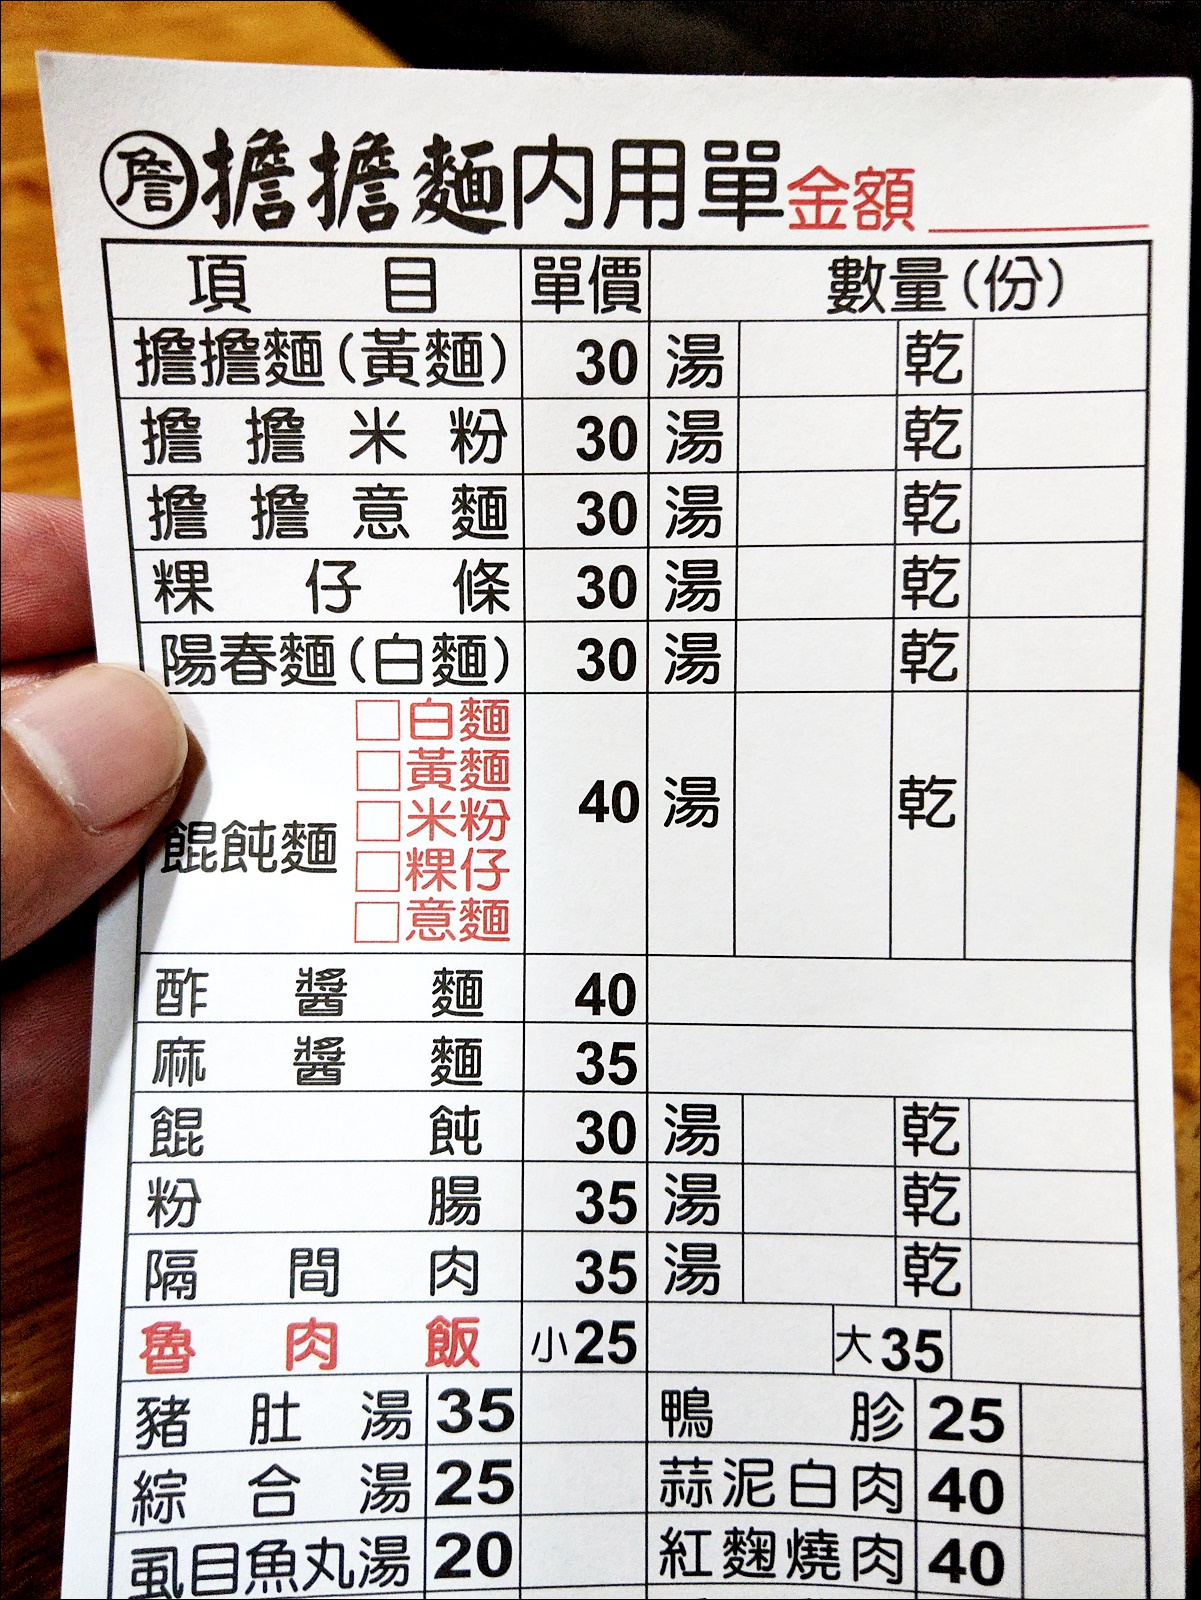 詹 擔擔麵內用單 金額
項目 單價 數量(份)
擔擔麵(黃麵) 30 湯 乾
擔擔米粉 30 湯 乾
擔擔意麵 30 湯 乾
粿仔條 30 湯 乾
陽春麵(白麵) 30 湯 乾
餛飩麵 □白麵 40 湯 乾
□黃麵
□米粉
□粿仔
□意麵
酢醬麵 40
麻醬麵 35
餛飩 30 湯 乾
粉腸 35 湯 乾
隔間肉 35 湯 乾
魯肉飯 小25 大35
豬肚湯 35 鴨胗 25
綜合湯 25 蒜泥白肉 40
虱目魚丸湯 20 紅麴燒肉 40